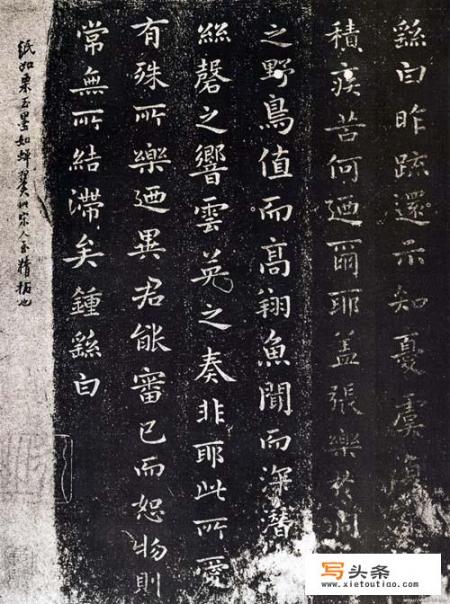 繇白昨疏還示知憂虞復
積疾苦何廼爾耶盖張樂於洞
之野鳥值而高翔魚聞而深潛
絲磬之響雲英之奏非耶此所愛
有殊所樂廼異君能審己而恕物則
常無所結滯矣鍾繇白
紙如栗玉墨如蟬翼此宋人至精拓也
写头条
www.xietoutiao.com